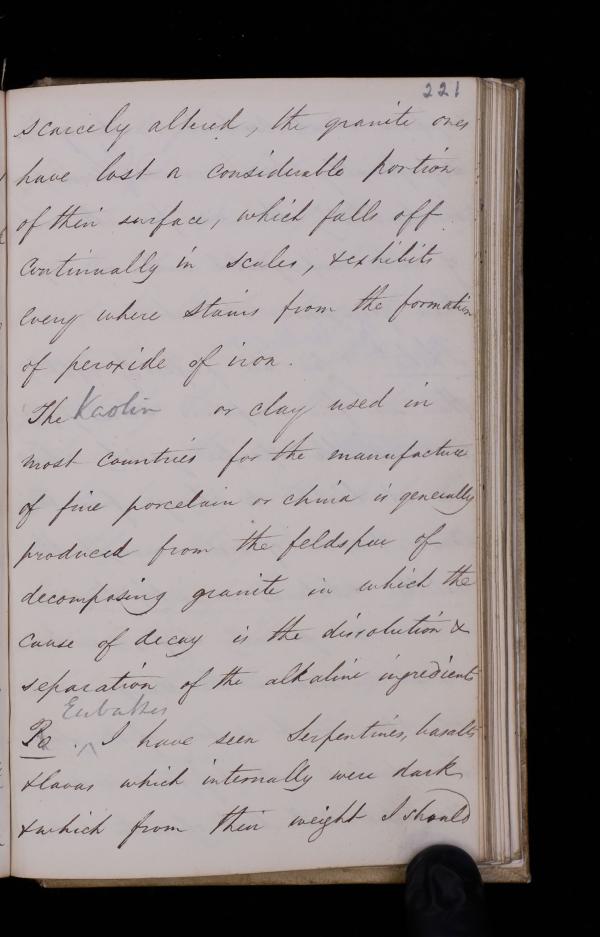 221
scarcely altered, the granite ones
have lost a considerable portion
of their surface, which falls off
continually in scales, & exhibits
every where stains from the formation
of peroxide of iron.
The Kaolin or clay used in
most countries for the manufacture
of fine porcelain or china is generally
produced from the feldspar of
decomposing granite in which the
cause of decay is the dissolution &
separation of the alkaline ingredients
Eubathes
^ I have seen Serpentines, basalts
& lavas which internally were dark
& which from their weight I should